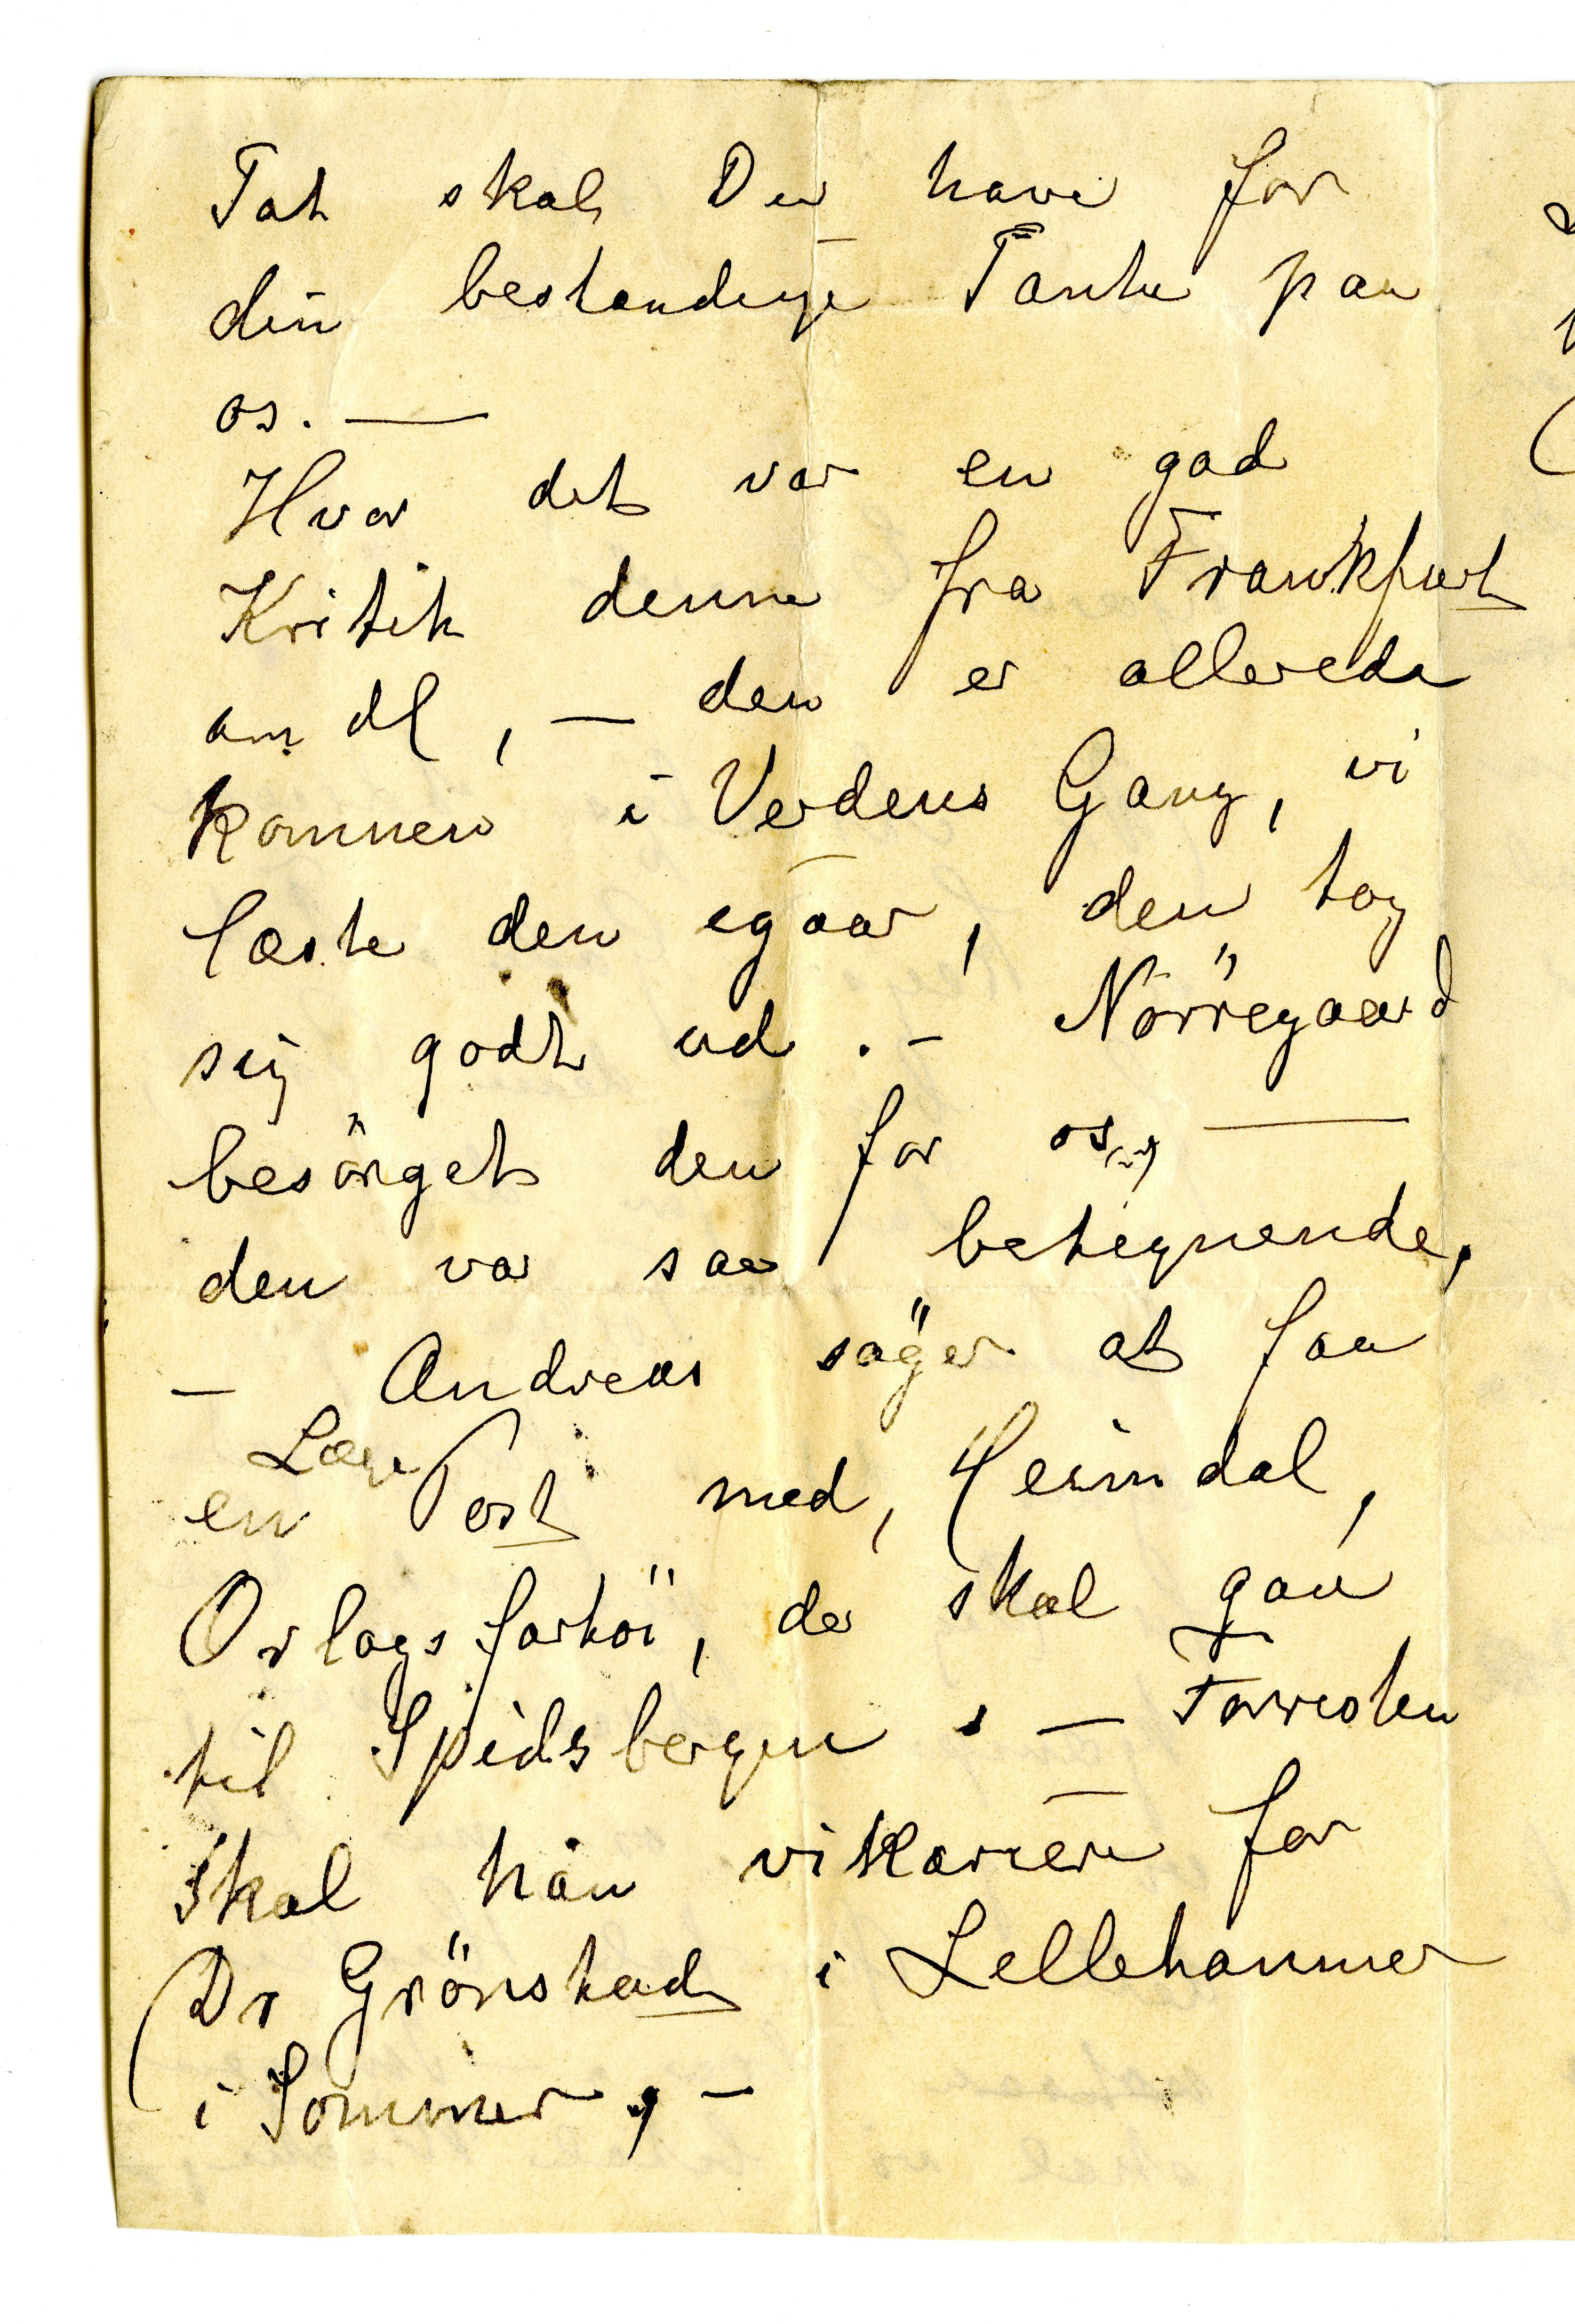 Tak skal Du have for
din bestandige Tanke paa
os. —
Hvor det var en god
Kritik denne fra Frankfurt
om dl, — den er allerede
kommen i Verdens Gang, vi
læste den igaar, den tog
sig godt ud. - Nörregaard
besörget den for os, —
den var saa betegnende,
— Andreas söger at faa
en Læge Post med, Heimdal,
Orlogsfartöi, der skal gaa
til Spidsbergen, — Forresten
skal han vikariere for
Dr Grönstad i Lillehammer
i Sommer, —